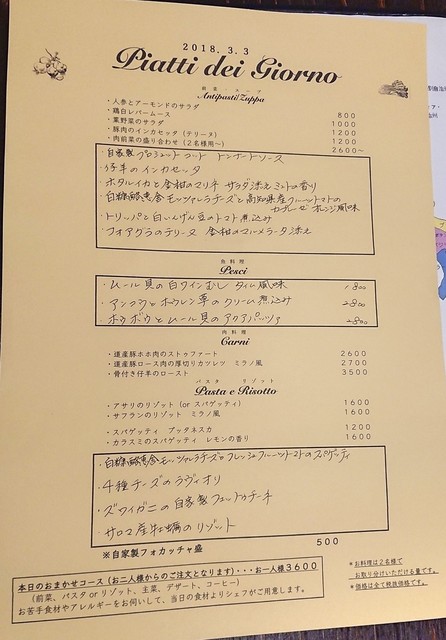 2018.3.3
Piatti dei Giorno
前菜・スープ
Antipasti/Zuppa
・人参とアーモンドのサラダ 800
・鶏白レバームース 1000
・葉野菜のサラダ 1200
・豚肉のインカセッタ (テリーヌ) 1200
・肉前菜の盛り合わせ (2名様用～) 2600～
・自家製プロシュットコット トンナートソース
・仔羊のインカセッタ
・ホタルイカと金柑のマリネ サラダ添え ミントの香り
・白糠酪恵舎モッツァレラチーズと高知県産フルーツトマトの
カプレーゼ オレンジ風味
・トリッパと白いんげん豆のトマト煮込み
・フォアグラのテリーヌ 金柑のマルメラータ添え
魚料理
Pesci
・ムール貝の白ワインむし タイム風味 1800
・アンコウとホウレン草のクリーム煮込み 2800
・ホウボウとムール貝のアクアパッツァ 2800
肉料理
Carni
・道産豚ホホ肉のストゥファート 2600
・道産豚ロース肉の厚切りカツレツ ミラノ風 2700
・骨付き仔羊のロースト 3500
パスタ リゾット
Pasta e Risotto
・アサリのリゾット (or スパゲッティ) 1600
・サフランのリゾット ミラノ風 1600
・スパゲッティ プッタネスカ 1200
・カラスミのスパゲッティ レモンの香り 1600
・白糠酪恵舎モッツァレラチーズとフレッシュフルーツトマトのスパゲッティ
・4種チーズのラヴィオリ
・ズワイガニの自家製フェットゥチーネ
・サロマ産牡蠣のリゾット
※自家製フォカッチャ盛 500
本日のおまかせコース (お二人様からのご注文となります)・・・お一人様3600
(前菜、パスタorリゾット、主菜、デザート、コーヒー)
お苦手食材やアレルギーをお伺いして、当日の食材よりシェフがご用意します。
*お料理は2名様で
お取り分けいただける量です。
*価格は全て税抜価格です。